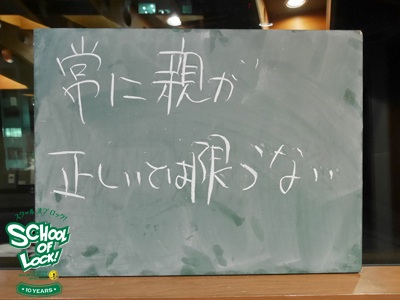 常に親が
正しいとは限らない
スクール オブ ロック!
SCHOOL
OF
LOCK!
10 YEARS